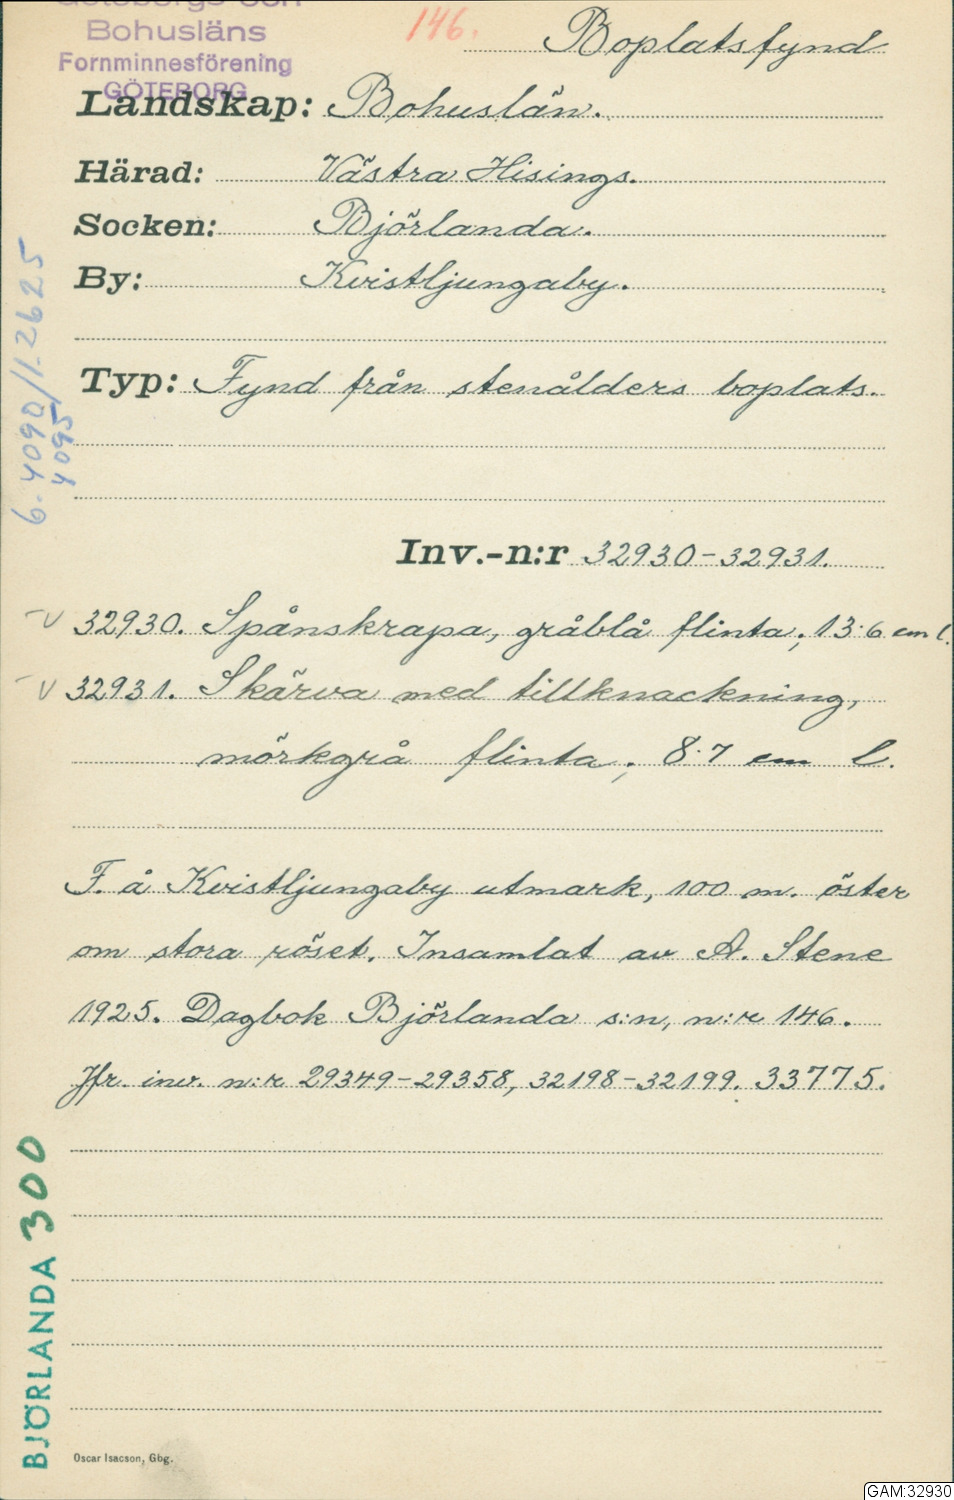 Göteborgs och
Bohusläns
Fornminnesförening
GÖTEBORG
146.
Boplatsfynd
Landskap: Bohuslän.
Härad: Västra Hisings.
Socken: Björlanda.
By: Kvistljungaby.
Typ: Fynd från stenålders boplats.
6. 4090/1-2625
4095
Inv.-n:r 32930-32931.
v 32930. Spånskrapa, gråblå flinta; 13·6 cm l.
v 32931. Skärva med tillknackning,
mörkgrå flinta; 8·7 cm l.
F. å Kvistljungaby utmark, 100 m. öster
om stora röset. Insamlat av A. Stene
1925. Dagbok Björlanda s:n, n:r 146.
Jfr. inv. n:r 29349-29358, 32198-32199. 33775.
BJÖRLANDA 300
Oscar Isacson, Gbg.
GAM:32930